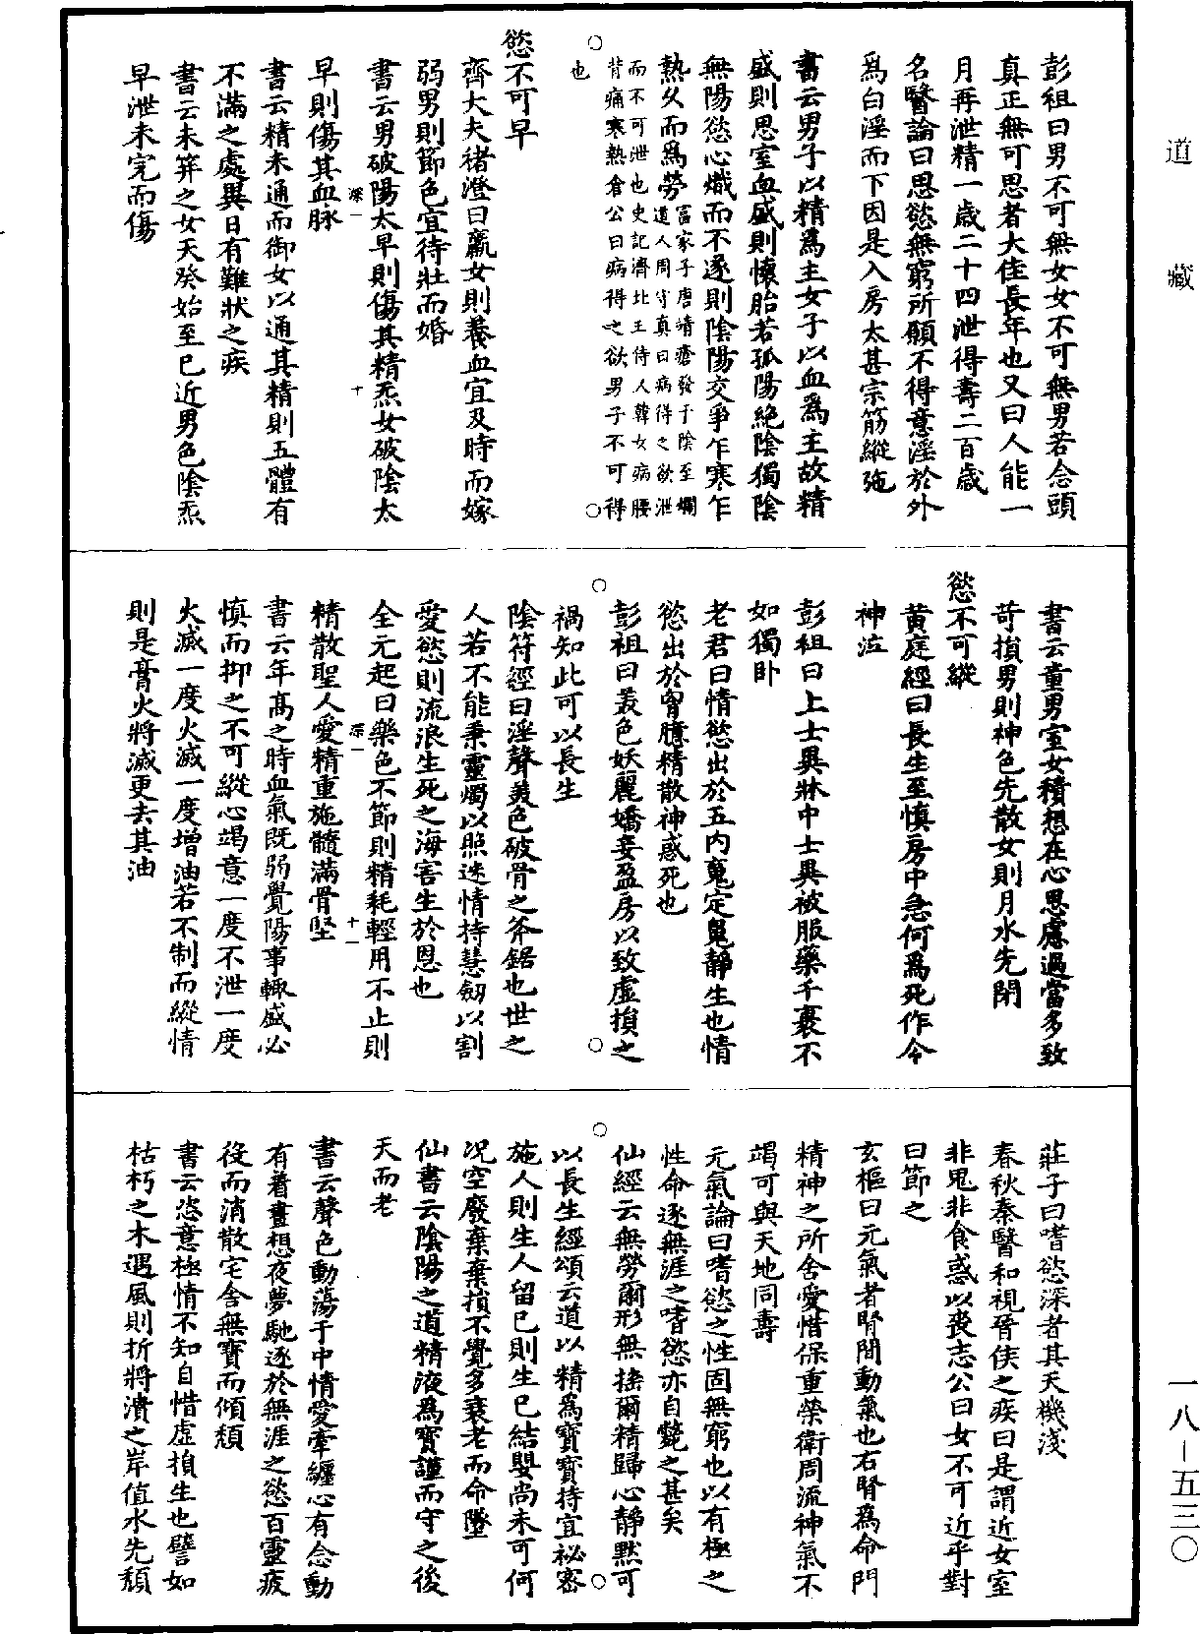 道藏
彭祖曰男不可無女女不可無男若念頭
真正無可思者大佳長年也又曰人能一
月再泄精一歲二十四泄得壽二百歲
名醫論曰思慾無窮所願不得意淫於外
爲白淫而下因是入房太甚宗筋縱弛
書云男子以精爲主女子以血爲主故精
盛則思室血盛則懷胎若孤陽絕陰獨陰
無陽慾心熾而不遂則陰陽交爭乍寒乍
熱久而爲勞富家子唐靖瘡發于陰至爛
道人周守真曰病得之欲泄
而不可泄也史記濟北王侍人韓女病腰
背痛寒熱倉公曰病得之欲男子不可得
也
慾不可早
齊大夫禇澄曰羸女則養血宜及時而嫁
弱男則節色宜待壯而婚
書云男破陽太早則傷其精炁女破陰太
深一 十
早則傷其血脉
書云精未通而御女以通其精則五體有
不滿之處異日有難狀之疾
書云未笄之女天癸始至已近男色陰炁
早泄未完而傷
書云童男室女積想在心思慮過當多致
苛損男則神色先散女則月水先閉
慾不可縱
黄庭經曰長生至慎房中急何爲死作令
神泣
彭祖曰上士異牀中士異被服藥千裹不
如獨卧
老君曰情慾出於五内䰟定䰟靜生也情
慾出於胷臆精散神惑死也
彭祖曰羙色妖麗嬌妾盈房以致虚損之
禍知此可以長生
陰符經曰淫聲羙色破骨之斧鋸也世之
人若不能秉靈燭以照迷情持慧劒以割
愛慾則流浪生死之海害生於恩也
全元起曰藥色不節則精耗輕用不止則
深一 十一
精散聖人愛精重施髓滿骨堅
書云年髙之時血氣既弱覺陽事輙盛必
慎而抑之不可縱心竭意一度不泄一度
火滅一度火滅一度增油若不制而縱情
則是膏火將滅更去其油
莊子曰嗜慾深者其天機淺
春秋秦醫和視晉侯之疾曰是謂近女室
非鬼非食惑以喪志公曰女不可近乎對
曰節之
玄樞曰元氣者腎間動氣也右腎爲命門
精神之所舍愛惜保重榮衛周流神氣不
竭可與天地同壽
元氣論曰嗜慾之性固無窮也以有極之
性命逐無涯之嗜慾亦自斃之甚矣
仙經云無勞爾形無揺爾精歸心靜黙可
以長生經頌云道以精爲寶寶持宜祕密
施人則生人留已則生已結嬰尚未可何
况空廢棄棄損不覺多衰老而命墜
仙書云陰陽之道精液爲寶謹而守之後
天而老
書云聲色動蕩于中情愛牽纏心有念動
有着晝想夜夢馳逐於無涯之慾百靈疲
役而消散宅舍無寶而傾頽
書云恣意極情不知自惜虚損生也譬如
枯朽之木遇風則折將潰之岸值水先頽
一八—五三〇